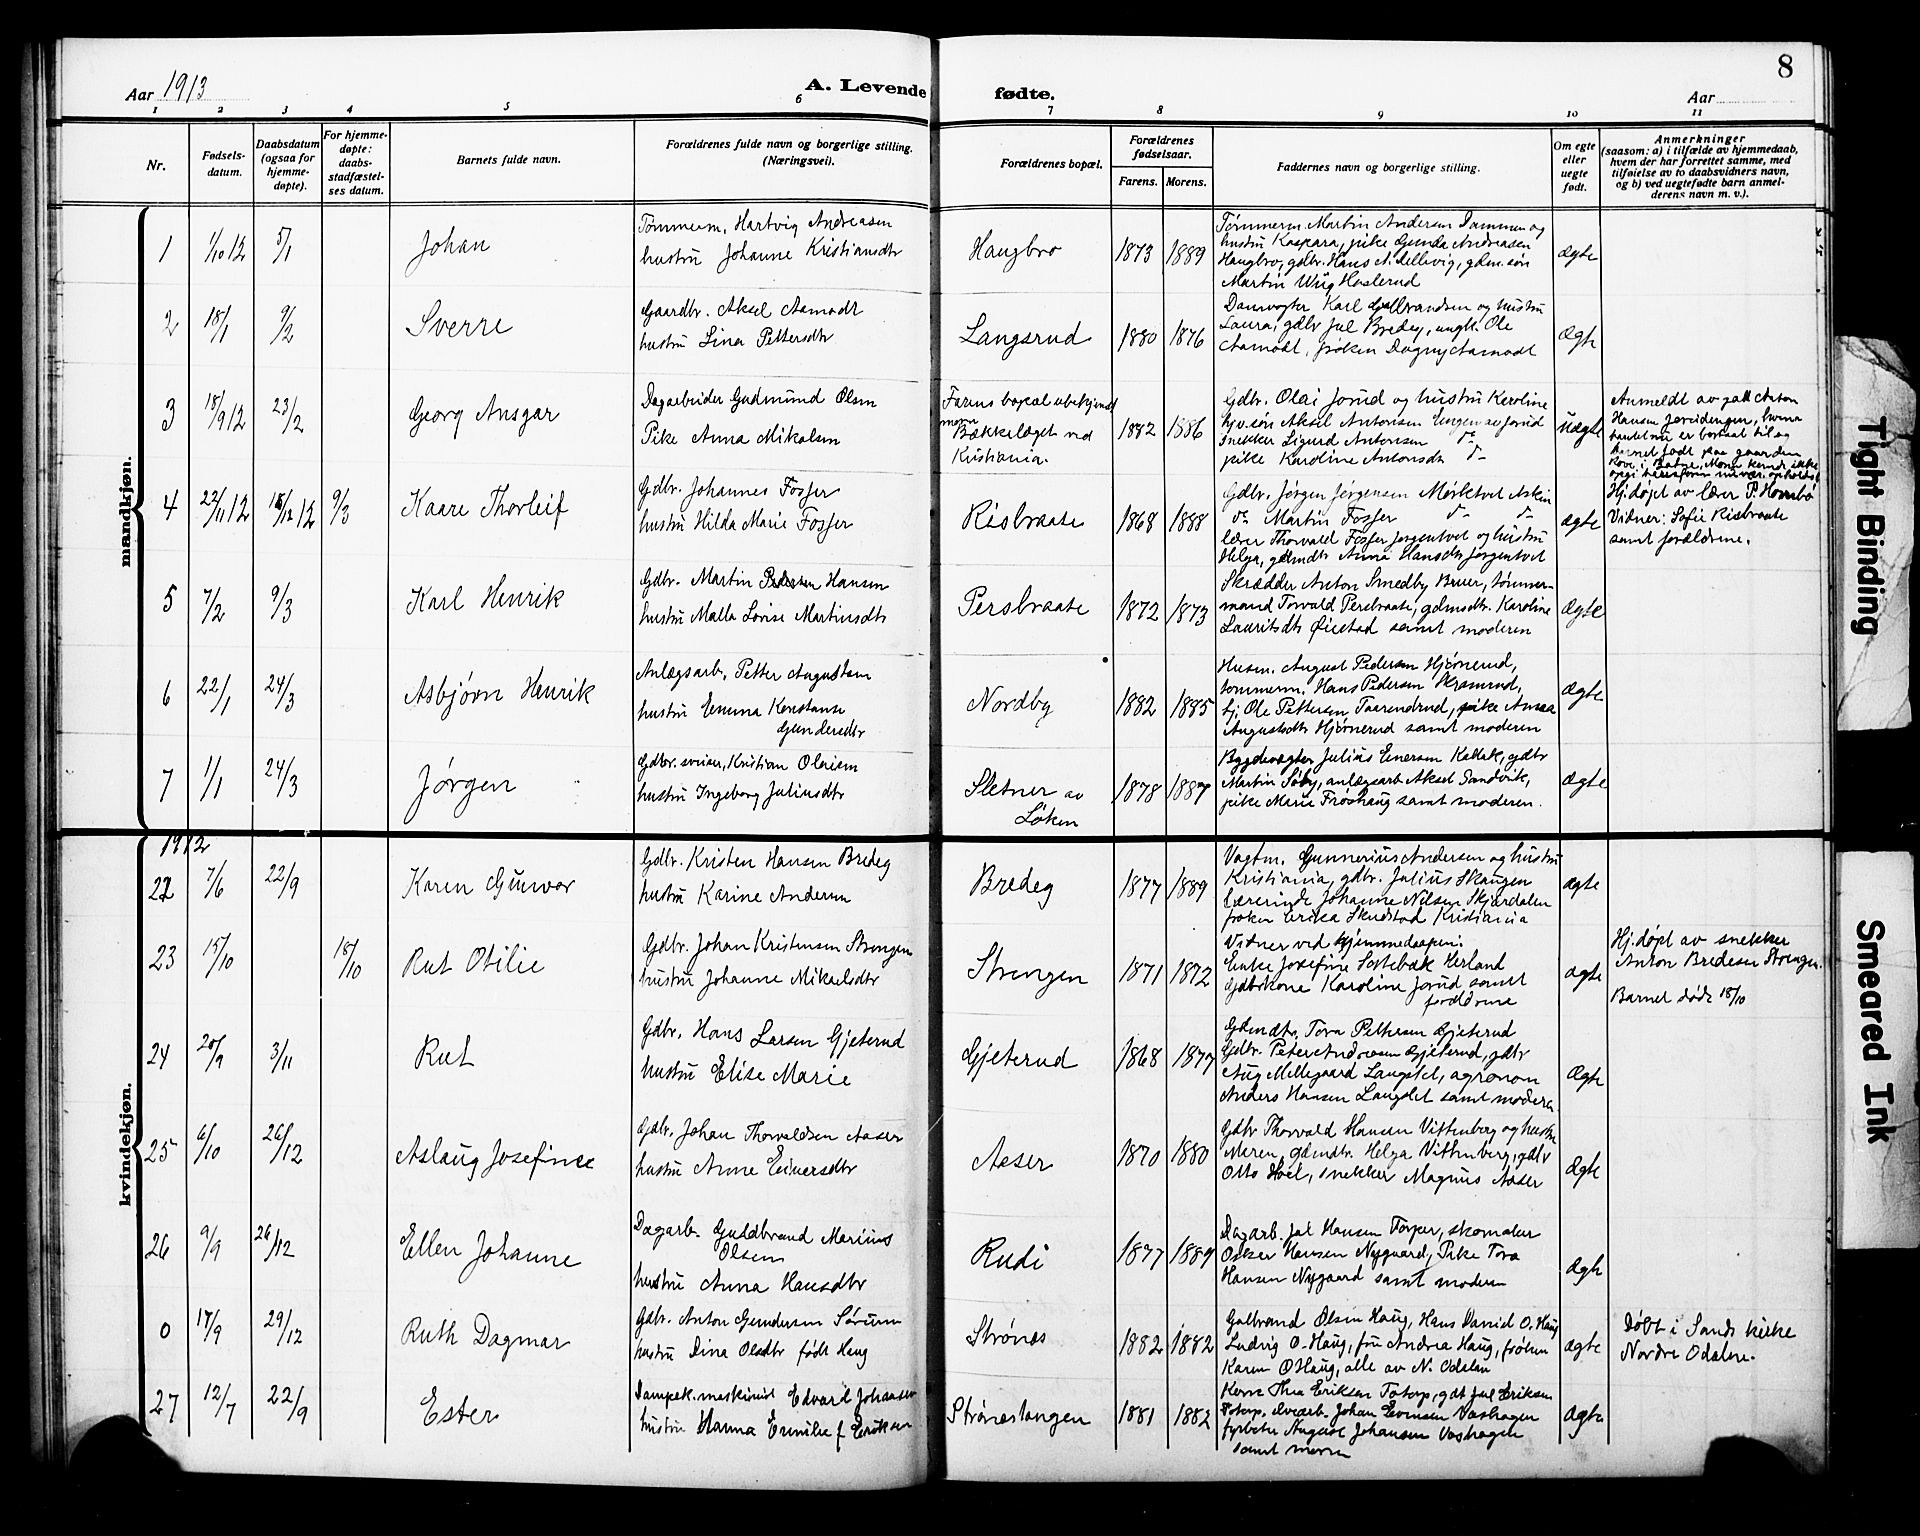 8
Aar 1913
A. Levende
fødte.
Aar
1 2 3 4 5 6 7 8 9 10 11
Nr.
Fødsels-
datum.
Daabsdatum
(ogsaa for
hjemme-
døpte).
For hjemme-
døpte:
daabs-
stadfæstel-
ses datum.
Barnets fulde navn.
Forældrenes fulde navn og borgerlige stilling.
(Næringsvei).
Forældrenes bopæl.
Forældrenes
fødselsaar.
Farens. Morens.
Faddernes navn og borgerlige stilling.
Om egte
eller
uegte
født.
Anmerkninger
(saasom: a) i tilfælde av hjemmedaab,
hvem der har forrettet samme, med
tilføielse av to daabsvidners navn,
og b) ved uegtefødte barn anmel-
derens navn m. v.).
mandkjøn.
1 1/10 12 5/1 Johan
Tømmerm. Hartvig Andreasen
hustru Johanne Kristiansdtr
Haugbro 1873 1889
Tømmerm. Martin Andersen Dammen og
hustru Kaspara, pike Gunda Andreasen
Haugbro, gdbr. Hans A. Mellevig, gdm.søn
Martin Wiig Haslerud
ægte
2 18/1 9/2 Sverre
Gaardbr. Aksel Aamodt
hustru Lina Pettersdtr
Langsrud 1880 1876
Damvogter Karl Gulbrandsen og hustru
Laura, gdbr Jul Bredeg, ungk. Ole
Aamodt, frøken Dagny Aamodt
ægte
3 18/9 12 23/2 Georg Ansgar
Dagarbeider Gudmund Olsen
Pike Anna Mikalsen
Farens bopæl ubekjendt
moren
Bækkelaget ved
Kristiania.
1882 1886
Gdbr. Olai Jorud og hustru Karoline
hjv. søn Aksel Antonsen Engen av Jorud
Snekker Sigurd Antonsen do
pike Karoline Antonsdtr do
uægte
Anmeldt av Anton
Hansen
er bortsat til og
barnet født paa gaarden
4 22/11 12 15/12 12 9/3 Kaare Thorleif
Gdbr. Johannes Fosser
hustru Hilda Marie Fosser
Risbraate 1868 1888
Gdbr. Jørgen Jørgensen Mørktvet Askim
do Martin Fosser do do
lærer Thorvald Fosser Jørgentvet og hustru
Helga, gdmdtr Anna Hansdtr Jørgentvet
ægte
Hj.døpt av lærer P. Hornsbø
Vidner: Sofie Risbraate
samt forældrene.
5 7/2 9/3 Karl Henrik
Gdbr. Martin Hansen
hustru Malla Lovise Martinsdtr
Persbraate 1872 1873
Skrædder Anton Smedby Bruer, tømmer-
mand Torvald Persbraate, gdmsdtr. Karoline
Lauritsdtr Øiestad samt moderen
Ægte
6 22/1 24/3 Asbjørn Henrik
Anlægsarb. Petter Augustsen
hustru Emma Konstanse
Gundersdtr
Nordby 1882 1885
Husm. August Pedersen Hjørnerud,
tømmerm. Hans Pedersen
hj. Ole Pettersen Taarendrud, pike Anna
Augustsdtr Hjørnerud samt moderen
ægte
7 1/1 24/3 Jørgen
Gdbr. sviser, Kristian Olaisen
hustru Ingeborg Juliusdtr
Sletner av
Løken
1878 1887
Bygdevægter Julius Enersen Kallak, gdbr
Martin Søby, anlægsarb Aksel Sandvik,
pike Marie Frøshaug samt moderen.
ægte
kvindekjøn.
1912
22 7/6 22/9 Karen Gunvor
Gdbr. Kristen Hansen Bredeg
hustru Karine Andersen
Bredeg 1877 1889
Vagtm. Gunnerius Andersen og hustru
Kristiania, gdbr. Julius Skaugen
lærerinde Johanne Nilsen Skjærdalen
frøken Erika Skudstad Kristiania
ægte
23 15/10 18/10 Rut Otilie
Gdbr. Johan Kristensen Strengen
hustru Johanne Mikaelsdtr
Strengen 1871 1872
Vidner ved hjemmedaapen:
Enke Josefine Sætebæk Herland
Gdbrkone Karoline Jorud samt
forældrene
ægte
Hj.døpt av snekker
Anton Bredesen Strengen.
Barnet døde 18/10
24 20/9 3/11 Rut
Gdbr. Hans Larsen Gjeterud
hustru Elise Marie
Gjeterud 1868 1877
Gdmdtr. Tora Pettersen Gjeterud
Gdbr. Peter Andreasen Gjeterud, gdbr
Aug Mellegaard Langslet, agronom
Anders Hansen Langslet samt moderen.
Ægte
25 6/10 26/12 Aslaug Josefine
Gdbr. Johan Thorvaldsen Aaser
hustru Anne Einersdtr
Aaser 1870 1880
Gdbr Thorvald Hansen Vittenberg og hustru
Maren, gdmdtr. Helga Vittenberg, gdbr
Otto Hoel, snekker Magnus Aaser
Ægte
26 9/9 26/12 Ellen Johanne
Dagarb. Guldbrand Marius
Olsen
hustru Anna Hansdtr
Rudi 1877 1889
Dagarb. Jul Hansen Torper, skomaker
Oskar Hansen Nygaard, Pike Tora
Hansen Nygaard samt moderen
Ægte
0 17/9 29/12 Ruth Dagmar
Gdbr. Anton Gundersen Sørum
hustru Dina Olsdtr født Haug
Strønæs 1882 1882
Gulbrand Olsen Haug, Hans David O. Haug
Ludvig O. Haug, fru Andrea Haug, frøken
Karen O Haug, alle av N. Odalen
ægte
Døbt i Sands kirke
Nordre Odalen.
27 12/7 22/9 Ester
Dampsk.maskinist Edvard Johansen
hustru Hanna Emilie f. Eriksen
Strønestangen 1881 1882
Kone Thea Eriksen Totorp, gdbr Jul Eriksen
Totorp, elvearb. Johan Evensen Vashagen
fyrbøter August Johansen Vashagen
samt moren
Ægte
Tight Binding
Smeared Ink